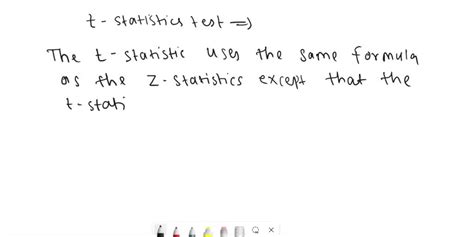 t-statistics test =>
The t-statistic uses the same formula
as the Z-statistics except that the
t-stati